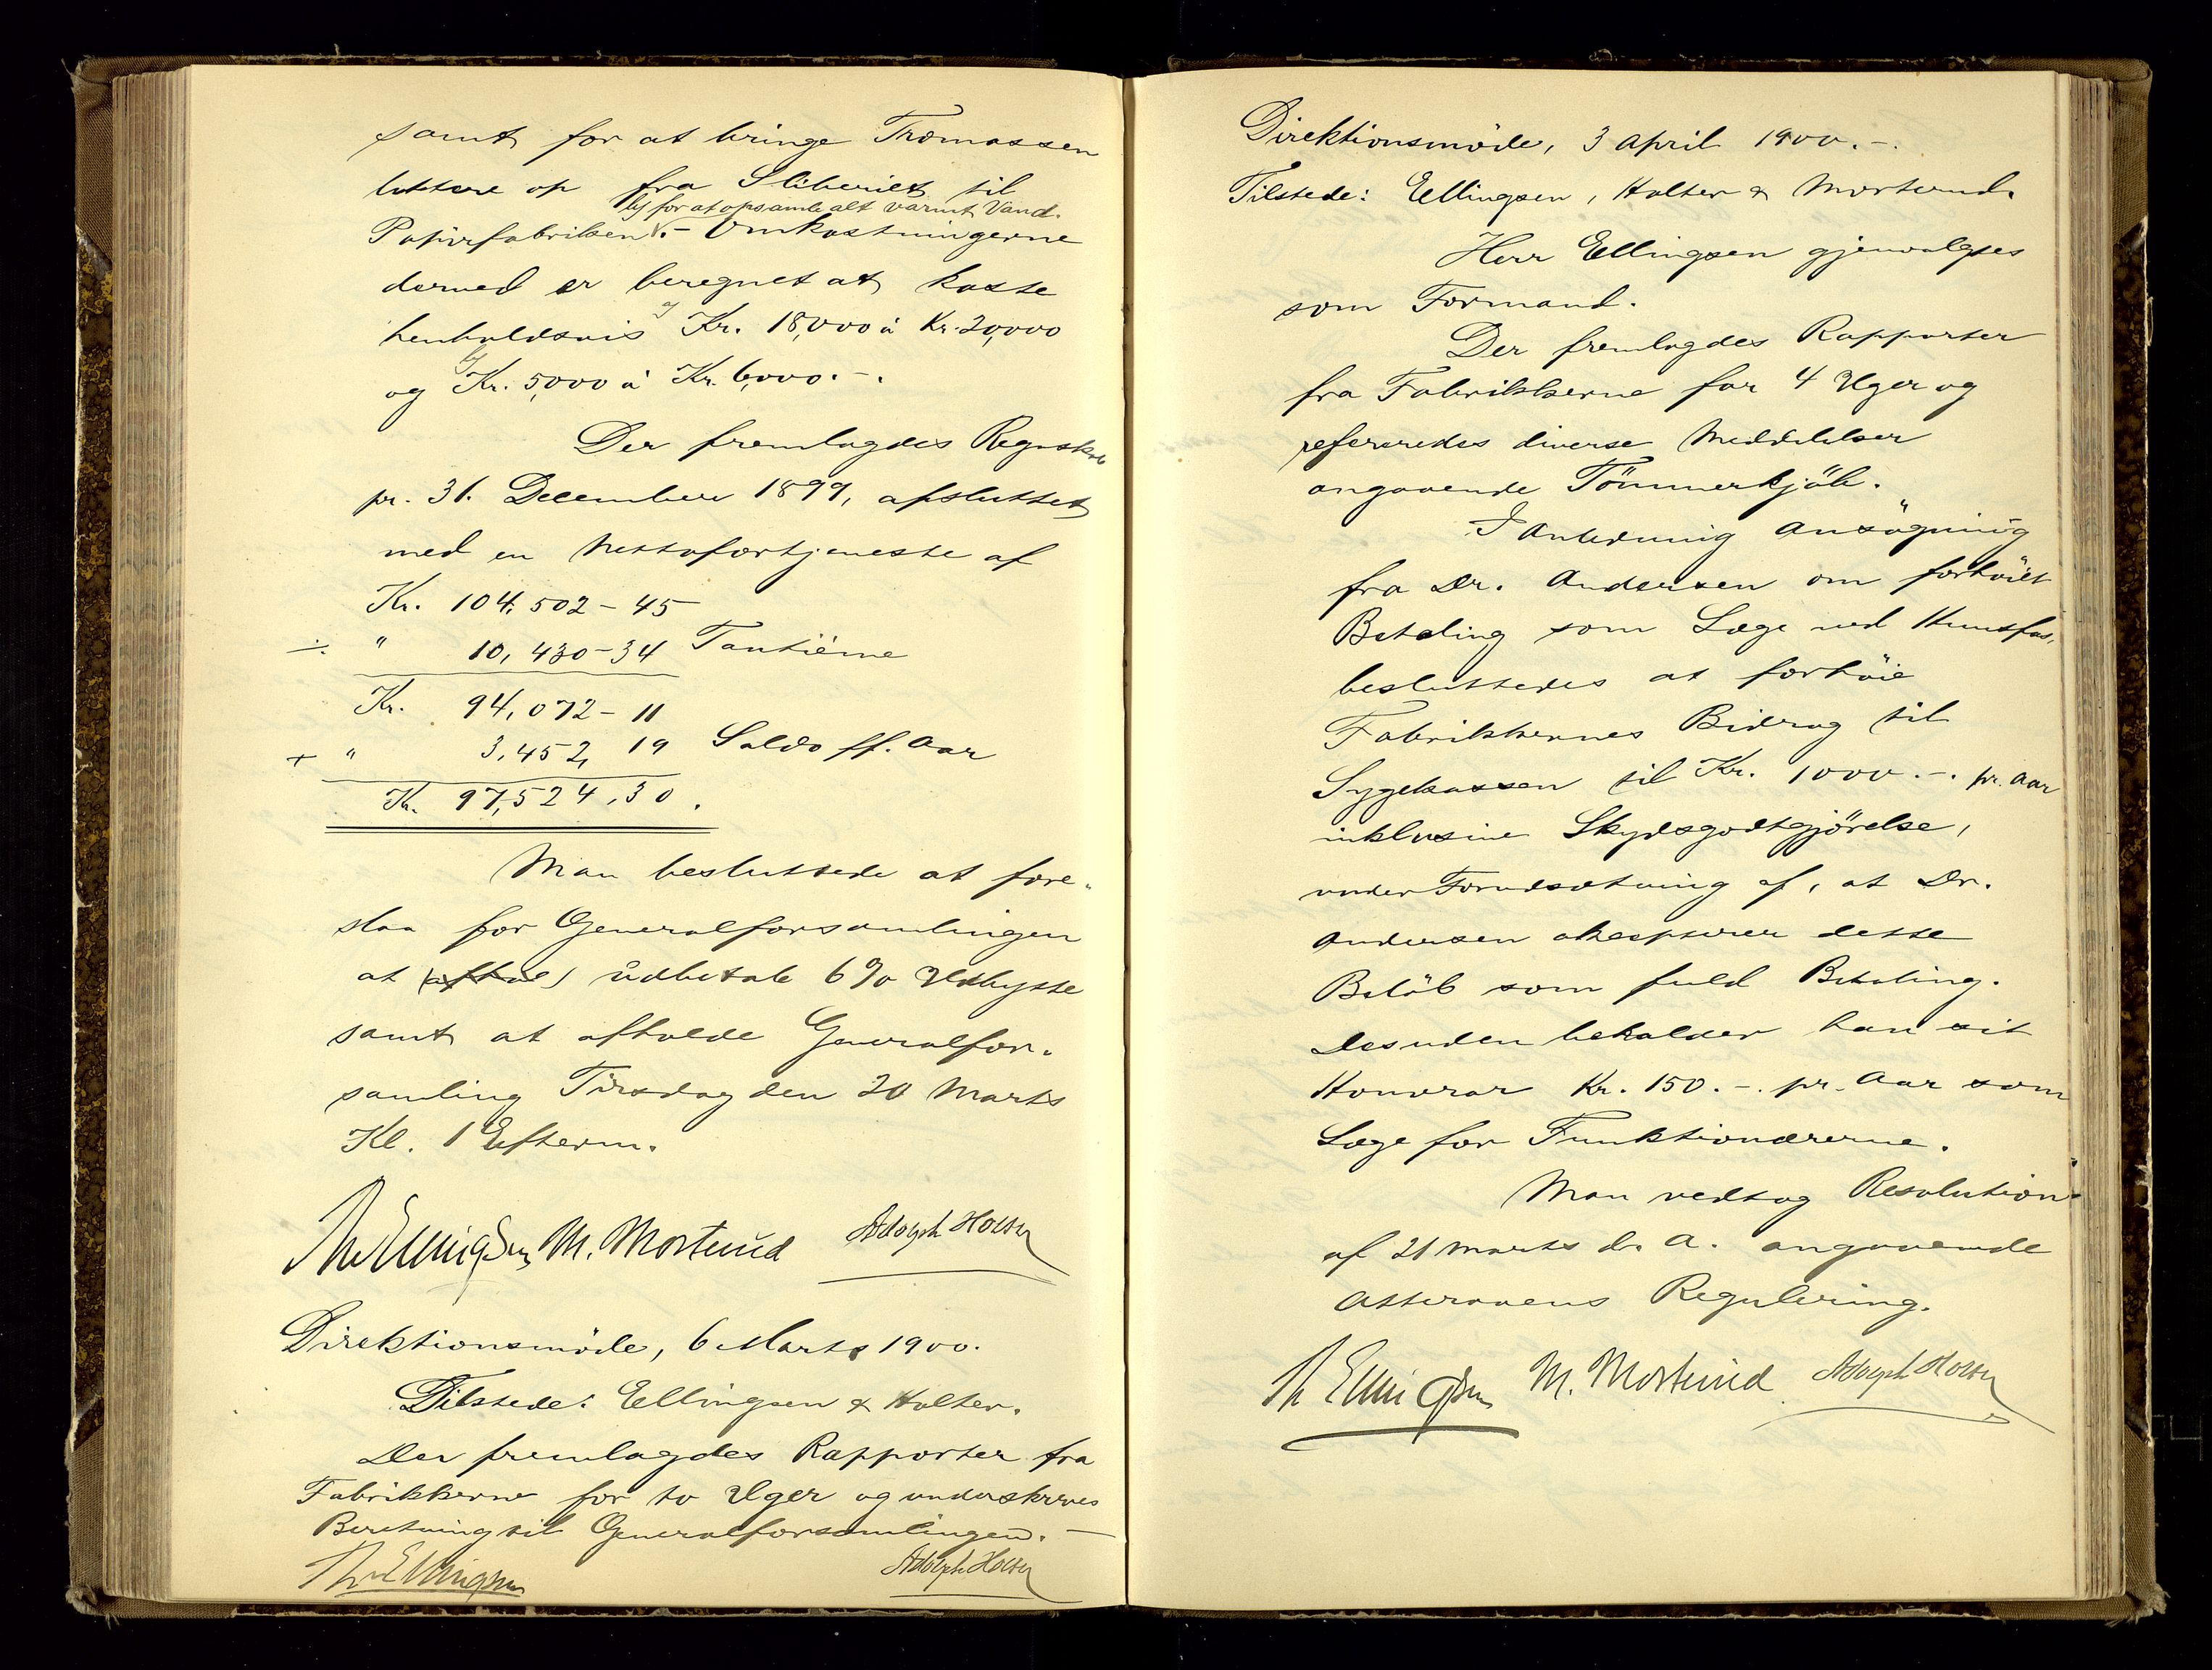 samt for at bringe Træmassen
lettere op fra Sliberiet til
b) for at opsamle alt varmt Vand.
Papirfabriken. – Omkostningerne
dermed er beregnet at koste
henholdsvis a) Kr. 18,000 à Kr. 20,000
og b) Kr. 5,000 à Kr. 6,000.-.
Der fremlagdes Regnskab
pr. 31. December 1899, afsluttet
med en Nettofortjeneste af
Kr. 104,502 - 45
÷ " 10,430 - 34 Tantième
Kr. 94,072 - 11
+ " 3,452, 19 Saldo ff. Aar
Kr. 97,524,30.
Man besluttede at fore-
slaa for Generalforsamlingen
at udbetale 6% Udbytte
samt at afholde Generalfor-
samling Tirsdag den 20 Marts
Kl. 1 Efterm.
Th. Ellingsen M. Mortund Adolph Holter
Direktionsmöde, 6 Marts 1900.
Tilstede: Ellingsen & Holter.
Der fremlagdes Rapporter fra
Fabrikkerne for to Uger og underskreves
Beretning til Generalforsamlingen. —
Th. Ellingsen Adolph Holter
Direktionsmöde, 3 April 1900.-.
Tilstede: Ellingsen, Holter & Mortund.
Herr Ellingsen gjenvalgtes
som Formand.
Der fremlagdes Rapporter
fra Fabrikkerne for 4 Uger og
refereredes diverse Meddelelser
angaaende Tömmerkjöb.
I Anledning Ansögning
fra Dr. Andersen om forhöiet
Betaling som Læge ved Hunsfos,
besluttedes at forhöie
Fabrikkernes Bidrag til
Sygekassen til Kr. 1000.-. pr. Aar
inklusive Skydsgodtgjörelse,
under Forudsætning af, at Dr.
Andersen aksepterer dette
Belöb som fuld Betaling.
Desuden beholder han sit
Honorar Kr. 150.-. pr. Aar som
Læge for Funktionærerne.
Man vedtog Resolution
af 21 Marts d. A. angaaende
Otteraaens Regulering.
Th Ellingsen M. Mortund Adolph Holter